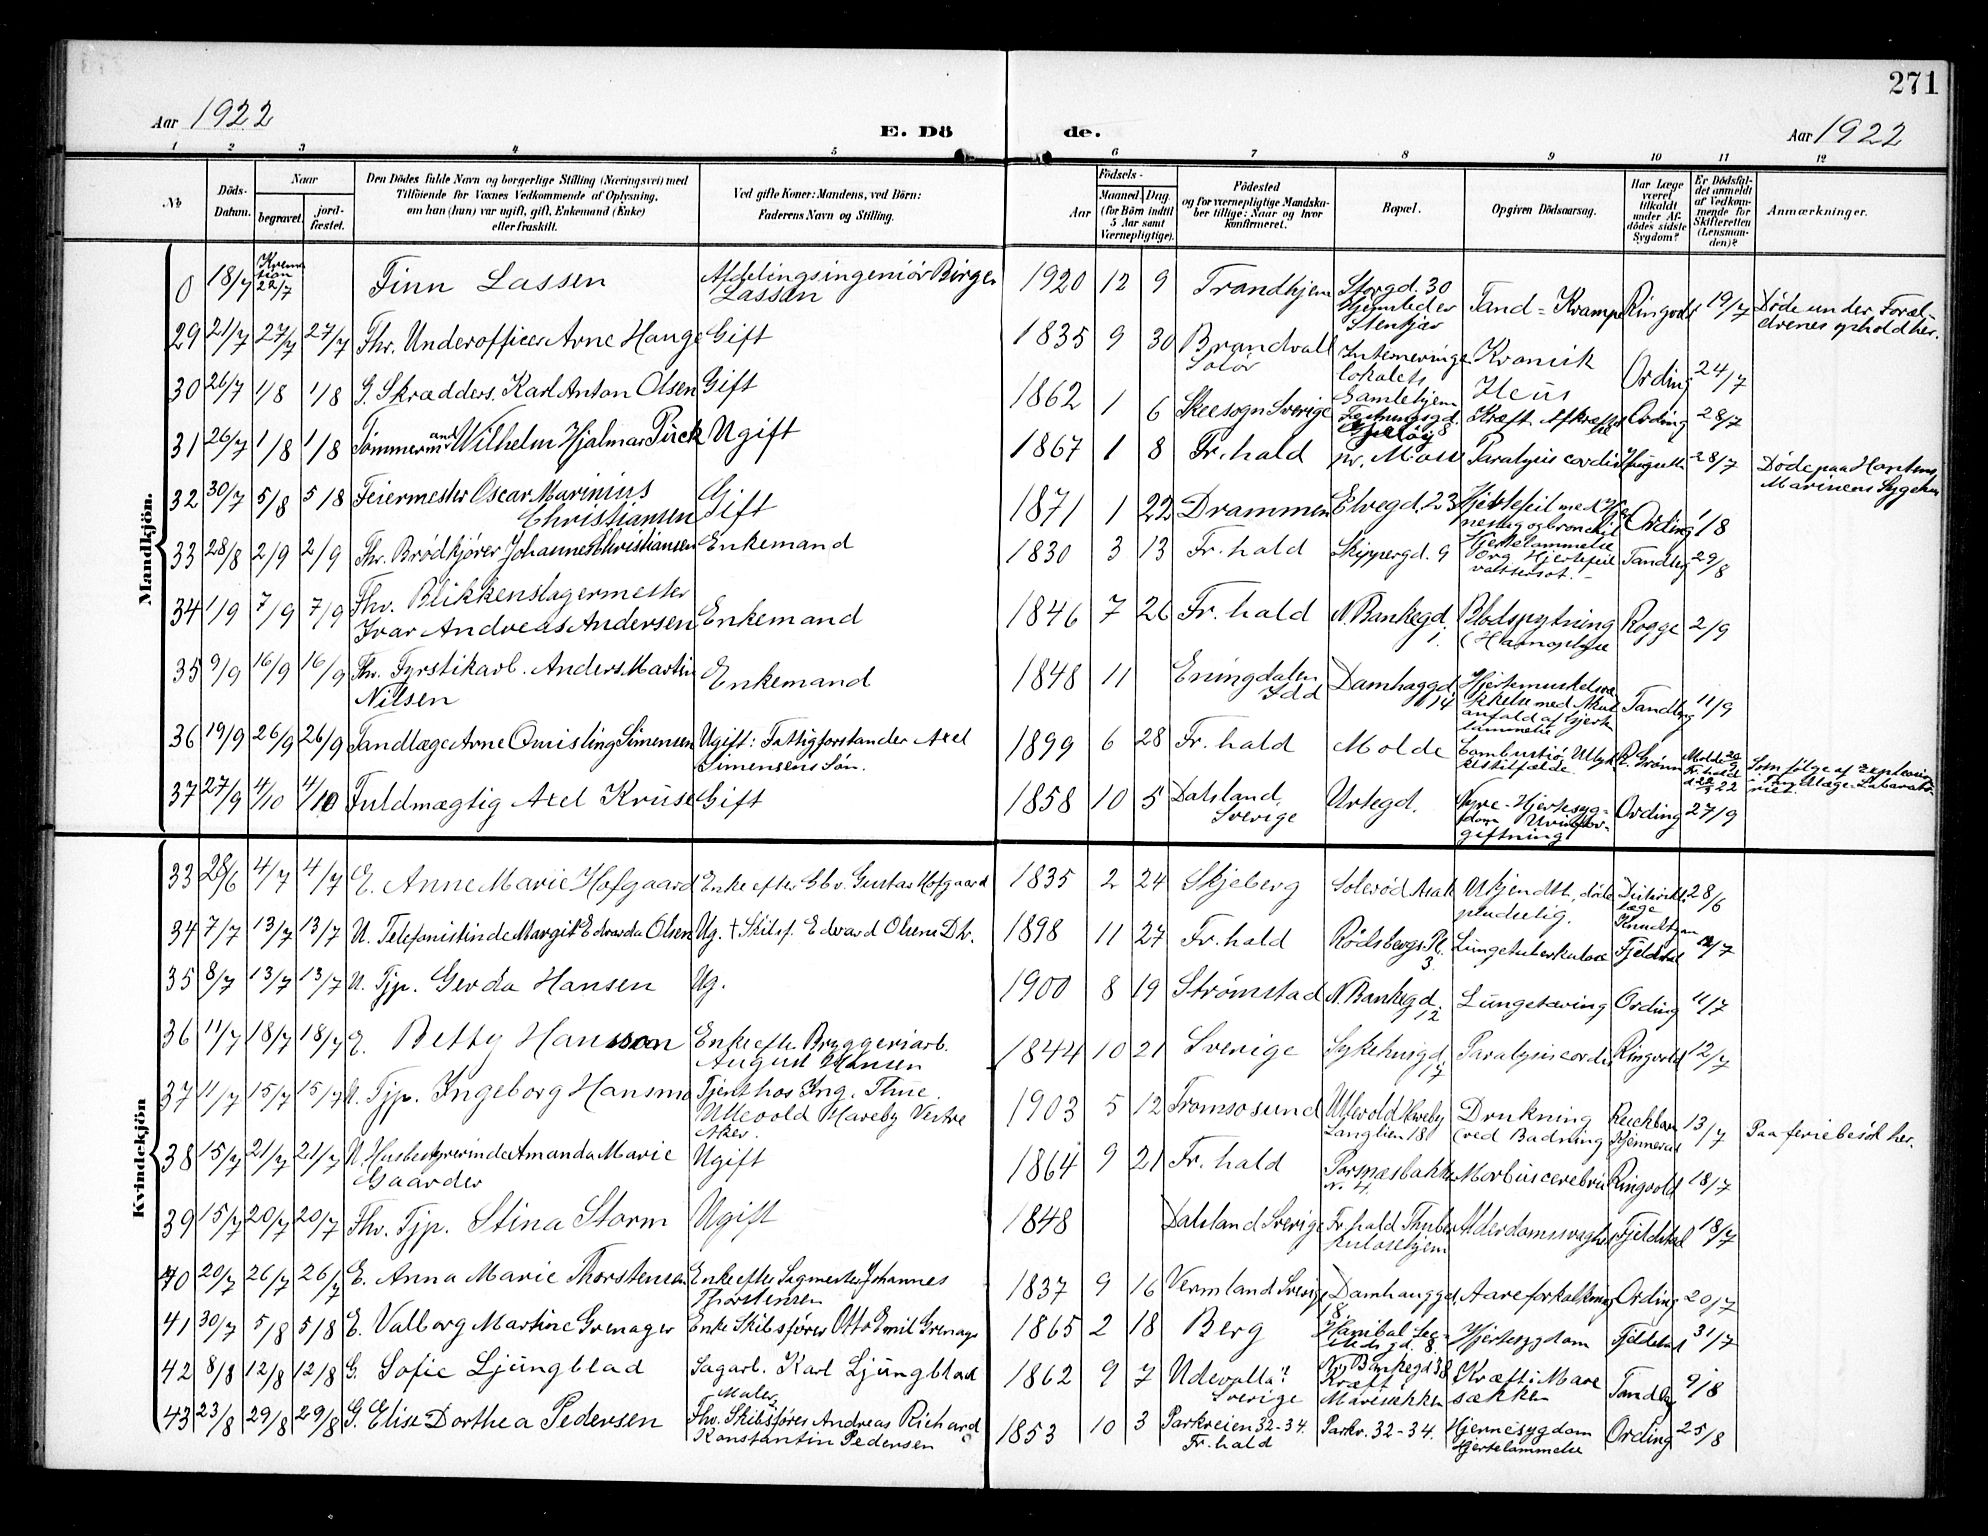 271
Aar 1922
E. Dö
de.
Aar 1922
1 2 3 4 5 6 7 8 9 10 11 12
No
Döds-Datum.
Naar
begravet.
jord-fæstet.
Den Dödes fulde Navn og borgerlige Stilling (Næringsvei) med
Tilföiende for Voxnes Vedkommende af Oplysning,
om han (hun) var ugift, gift, Enkemand (Enke)
eller fraskilt.
Ved gifte Koner: Mandens, ved Börn:
Faderens Navn og Stilling.
Födsels-
Aar
Maaned. Dag.
(for Börn indtil
5 Aar samt
Værnepligtige).
Födested
og for værnepligtige Mandska-
ber tillige: Naar og hvor
konfirmeret.
Bopæl.
Opgiven Dödsaarsag.
Har Læge
været
tilkaldt
under Af-
dödes sidste
Sygdom?
Er Dödsfal-
det anmeldt
af Vedkom-
mende for
Skifteretten
(Lensman-
den)?
Anmærkninger.
Mandkjön.
0 18/7 22/7 Finn Lassen Afdelingsingeniör Birger Lassen 1920 12 9 Trondhjem Storgd. 30 Stenkjær Tand-Krampe Ringvold 19/7 Døde under Foræl-
drenes ophold her.
29 21/7 27/7 27/7 Fhv. Underofficer Arne Hauge Gift 1835 9 30 Brandvall Solør Interneringslokalets Gamlehjem Kronisk Ileus Ording 24/7
30 26/7 1/8 1/8 G. Skrædders. Karl Anton Olsen Gift 1862 1 6 Skeesogn Sverige Kræft Afkræftelse Ording 28/7
31 26/7 1/8 1/8 Tømmermand Wilhelm Hjalmar Pück Ugift 1867 1 8 Fr. hald Jeløy pr. Moss Paralysis cordis 28/7 Døde paa Hortens
Marinens Sygehus
32 30/7 5/8 5/8 Feiermester Oscar Marinius
Christiansen Gift 1871 1 22 Drammen Elvegd. 23 Ording 1/8
33 28/8 2/9 2/9 Fhv. Brødkjører Johannes Christiansen Enkemand 1830 3 13 Fr. hald Skippergd. 9 Hjertelammelse
Org. Hjertefeil
vattersot. Tandberg 29/8
34 1/9 7/9 7/9 Fhv. Blikkenslagermester
Ivar Andreas Andersen Enkemand 1846 7 26 Fr. hald N. Bankegd. 1. Blodspytning
(Hæmoptyse Rogge 2/9
35 9/9 16/9 16/9 Fhv. Fyrstikarb. Anders Martin
Nilsen Enkemand 1848 11 Eningdalen Idd Damhaugd. 14 Hjertemuskelsvækkelse med Akut
anfald af hjerte
lammelse Tandberg 11/9
36 19/9 26/9 26/9 Tandlæge Arne Qvisling Simensen Ugift: Fattigforstander Axel
Simensens Søn. 1899 6 28 Fr. hald Molde Combustio R. Grønn Molde 20/9 Fr. hald d 22/9 22 Som følge af Explosion
i Tandlæge Laboratoriet.
37 27/9 4/10 4/10 Fuldmægtig Axel Kruse Gift 1858 10 5 Dalsland, Sverige Urtegd. Nyre-Hjertesyg-
dom Urinfor-
giftning Ording 27/9
Kvindekjön
33 28/6 4/7 4/7 E. Anne Marie Hofgaard Enke efter Gbr. Gustav Hofgaard 1835 2 24 Skjeberg Solerød Asak Ukjendt, døde
pludselig. Distriktslæge Knudtzon 28/6
34 7/7 13/7 13/7 U. Telefonistinde Margit Edvarda Olsen Ug. + Skibsf. Edvard Olsens Dtr. 1898 11 27 Fr. hald Rødsbergs Pl. 3. Lungetuberkulose Fjeldstad /7
35 8/7 13/7 13/7 U. Tjp. Gerda Hansen Ug. 1900 8 19 Strømstad N. Bankegd. 12 Lungetæring Ording 11/7
36 11/7 18/7 18/7 E. Betty Hansson Enke efter Bryggeriarb.
August Hansen 1844 10 21 Sverige Sykehusgd. 17 Paralysis cordis Ringvold 12/7
37 11/7 15/7 15/7 U. Tjp. Ingeborg Hansmo Tjent hos Ing. Thue.
Ullevold Haveby Vestre
Aker. 1903 5 12 Tromsøsund Ullevold Haveby
Langlien 18 Drukning
(ved Badning 13/7 Paa feriebesøk her.
38 15/7 21/7 21/7 U. Husbestyrerinde Amanda Marie
Gaarder Ugift 1864 9 21 Fr. hald Porsnæsbakken
N. 4. Morbus cerebri Ringvold 18/7
39 15/7 20/7 20/7 Fhv. Tjp. Stina Storm Ugift 1848 Dalsland Sverige Fr. hald Thuber
kulosehjem Alderdomssvaghed Fjeldstad 18/7
40 20/7 26/7 26/7 E. Anna Marie Thorstensen Enke efter Sagmester Johannes
Thorstensen 1837 9 16 Vermland Sverige Damhaugd. 18 Aareforkalkning Ording 20/7
41 30/7 5/8 5/8 E. Valborg Martine Grenager Enke Skibsfører Otto Emil Grenager 1865 2 18 Berg Hanibal Sehesteds gd. 8. Hjertesygdom Fjeldstad 31/7
42 8/8 12/8 12/8 G. Sofie Ljüngblad Sagarb. Karl Ljüngblad 1862 9 7 Udevalla
Sverige N. Bankegd 38
Kræft i
Mavesækken Kræft i Mave
sækken Tandberg 9/8
43 23/8 29/8 29/8 G. Elise Dorthea Pedersen Fhv. Skibsfører Andreas Richard
Konstantin Pedersen 1853 10 3 Parkveien 32-34.
Fr. hald Parkv. 32-34. Hjernesygdom
Hjertelammelse Ording 25/8